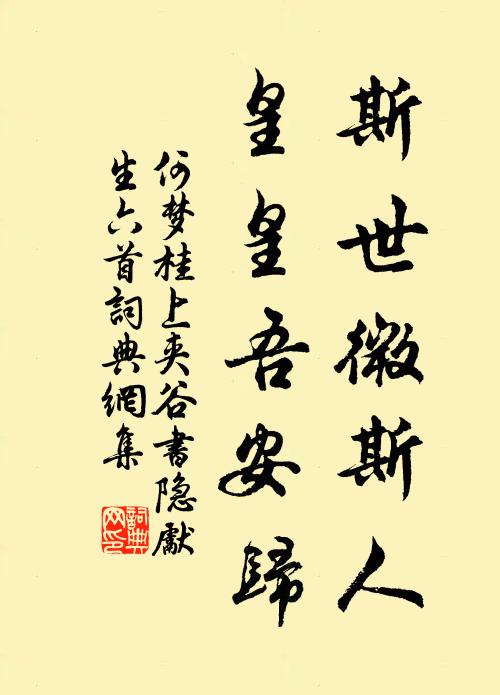 斯世微斯人
皇皇吾安歸
何梦桂上夾谷書隐獻
生六首詞典網集
詞典
网印